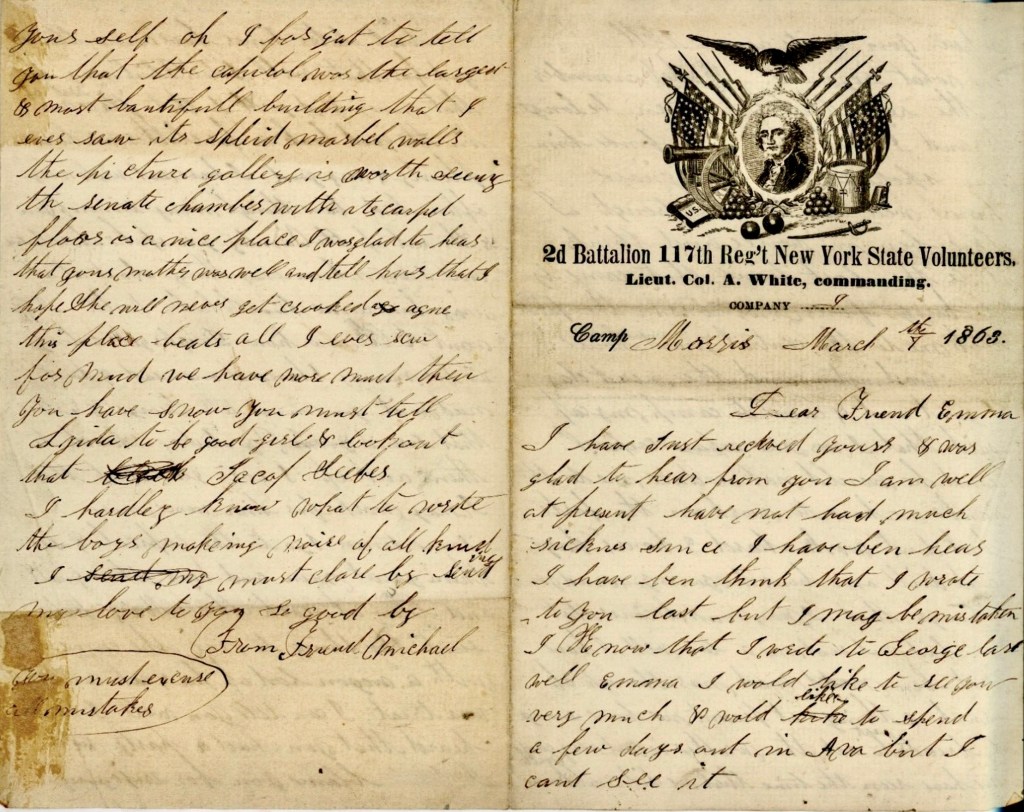 U.S.
2d Battalion 117th Reg't New York State Volunteers.
Lieut. Col. A. White, commanding.
COMPANY I
Camp Morris March 7th 1863.
Dear Friend Emma
I have Just recived yours & was
glad to hear from you I am well
at present have not had much
sicknes since I have ben hear
I have ben think that I wrote
to you last but I may be mistaken
I know that I wrote to George last
well Emma I wold like to see you
very much & wold like to spend
a few days out in Ava but I
cant see it
your self oh I for gat to tell
you that the capitol was the largest
& most bautifull building that I
ever saw its spleid marbel walls
the picture gallery is worth seeing
th senate chamber with its carpet
floor is a nice place I was glad to hear
that your mother was well and tell hur that I
hope She will never get crooked agne
this place beats all I ever saw
for mud we have more mud then
you have snow You must tell
Lyida to be good girl & look out
that Jacof Cleefes
I hardley know what to wrote
the boys makeing noise of all kind
I must close by send ing
my love to you so good by
From Friend Michael
You must excuse
all mistakes